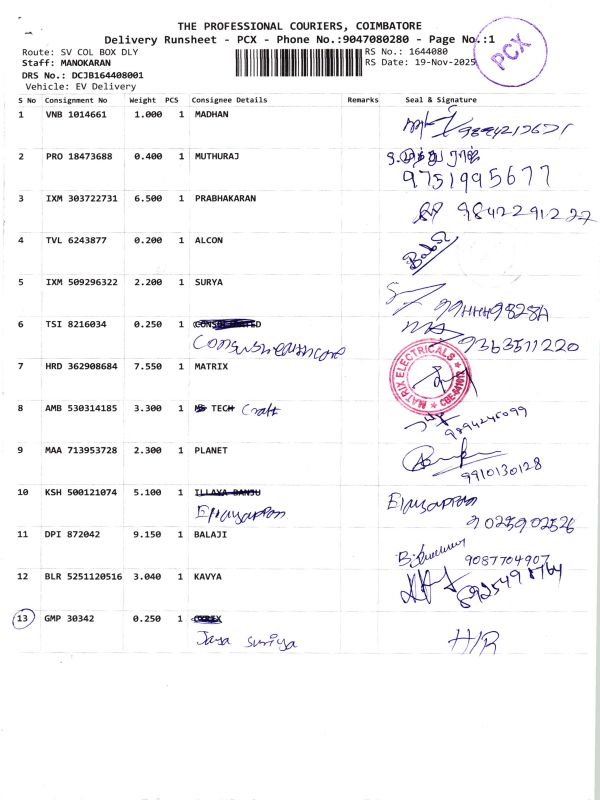 THE PROFESSIONAL COURIERS, COIMBATORE
Delivery Runsheet - PCX - Phone No.:9047080280 - Page No.:1
PCX
Route: SV COL BOX DLY
RS No.: 1644080
Staff: MANOKARAN
RS Date: 19-Nov-2025
DRS No.: DCJB164408001
Vehicle: EV Delivery
S No Consignment No Weight PCS Consignee Details Remarks Seal & Signature
1 VNB 1014661 1.000 1 MADHAN
2 PRO 18473688 0.400 1 MUTHURAJ
9751995677
3 IXM 303722731 6.500 1 PRABHAKARAN 9842291227
4 TVL 6243877 0.200 1 ALCON
5 IXM 509296322 2.200 1 SURYA
6 TSI 8216034 0.250 1
9363511220
7 HRD 362908684 7.550 1 MATRIX
MATRIX ELECTRICALS
8 AMB 530314185 3.300 1 TECH Craft
9894245099
9 MAA 713953728 2.300 1 PLANET
9910130128
10 KSH 500121074 5.100 1 ILLAYA BANJU
Elayappan
9025902526
11 DPI 872042 9.150 1 BALAJI
9087704907
12 BLR 5251120516 3.040 1 KAVYA
8925498764
13 GMP 30342 0.250 1
Jaya Suriya H/R